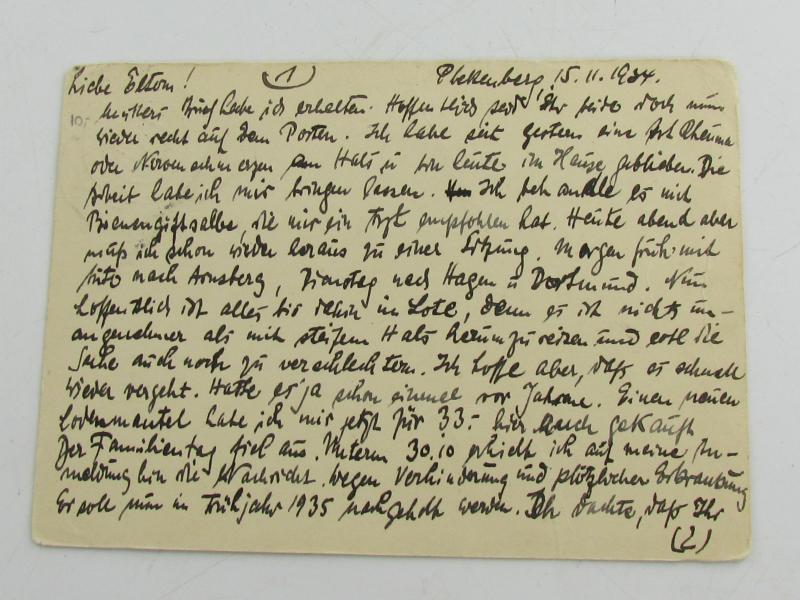 Liebe Eltern! (1) Plettenberg, 15.11.1934.
Mutters Brief habe ich erhalten. Hoffentlich seid Ihr beide doch nun
10,-
wieder recht auf dem Posten. Ich habe seit gestern eine Art Rheuma
oder Nervenschmerzen am Hals u bin heute im Hause geblieben. Die
Arbeit habe ich mir bringen lassen. Ich behandle es mit
Bienengiftsalbe, die mir ein Arzt empfohlen hat. Heute abend aber
muß ich schon wieder heraus zu einer Sitzung. Morgen früh mit
Auto nach Arnsberg, Dienstag nach Hagen u Dortmund. Nun
hoffentlich ist alles bis dahin im Lote, denn es ist nichts un-
angenehmer als mit steifem Hals herumzureisen und evtl die
Sache auch noch zu verschlechtern. Ich hoffe aber, daß es schnell
wieder vergeht. Hatte es ja schon einmal vor Jahren. Einen neuen
Lodenmantel habe ich mir jetzt für 33.- hier auch gekauft
Der Familientag fiel aus. Unterm 30.10 erhielt ich auf meine An-
meldung hin die Nachricht. Wegen Verhinderung und plötzlicher Erkrankung
Er soll nun im Frühjahr 1935 nachgeholt werden. Ich dachte, daß Ihr
(2)